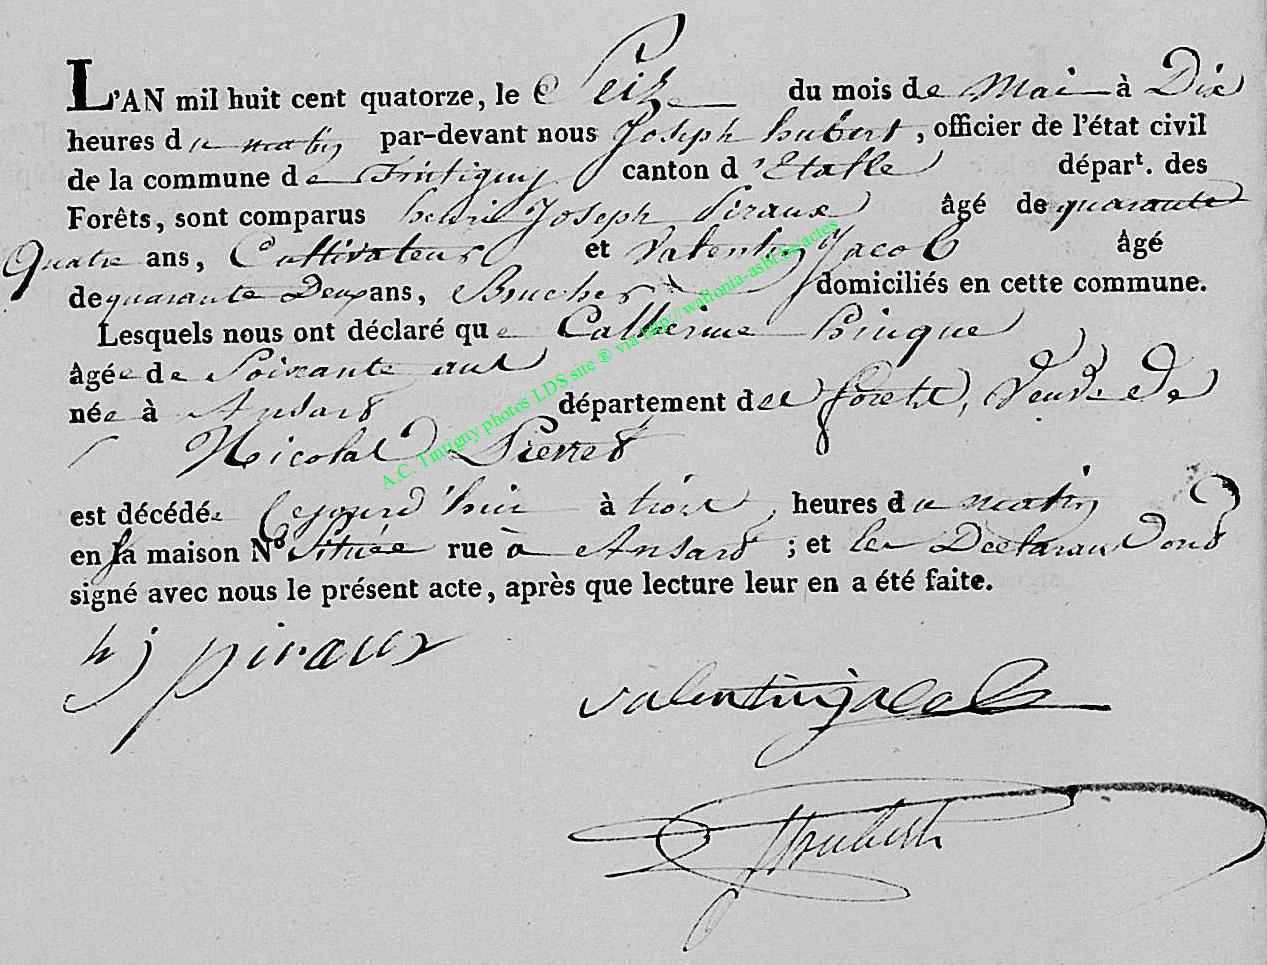 L'AN mil huit cent quatorze, le Seize du mois de Mai à Dix
heures du matin par-devant nous Joseph hubert, officier de l'état civil
de la commune de Tintigny canton d'Etalle départ. des
Forêts, sont comparus henri Joseph Piraux âgé de quarante
Quatre ans, Cultivateur et Valentin Jacob âgé
de quarante Deux ans, Boucher à domiciliés en cette commune.
Lesquels nous ont déclaré que Catherine Pinque
âgée de Soixante ans
née à Ansart département des forets, Veuve De
Nicolas Pierret
est décédée Cejourd'hui à trois heures du matin
en sa maison N° Située rue à Ansart ; et les Declarans Ont
signé avec nous le présent acte, après que lecture leur en a été faite.
hj piraux
valentin jacob
JHubert
A.C. Tintigny photos LDS site ® via http://wallonia-asbl.be/actes